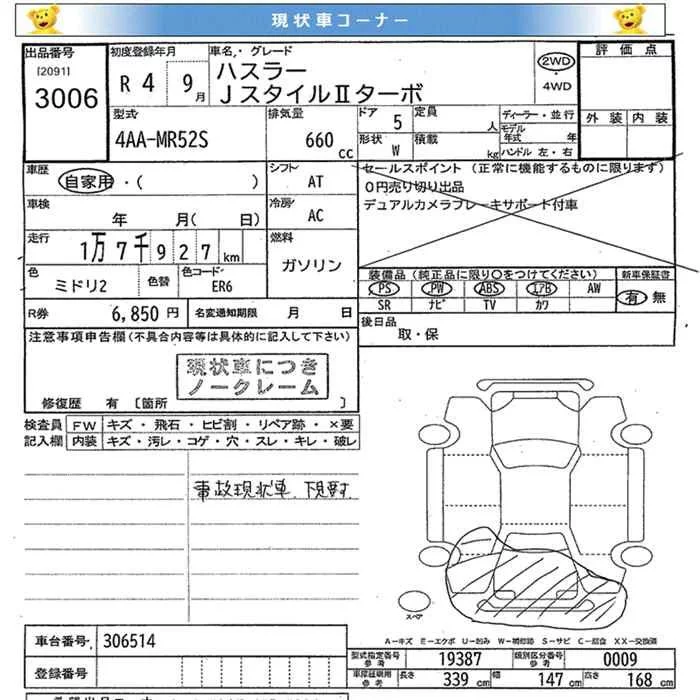 現状車コーナー
出品番号 初度登録年月 車名・グレード 評価点
[2091] 3006 R 4 9月 ハスラー 2WD
JスタイルⅡターボ 4WD
外装 内装
型式 排気量 ドア 5 定員 人 ディーラー・並行
4AA-MR52S 660 cc 形状 W 積載 kg モデル年式 年
ハンドル 左・右
車歴 シフト セールスポイント (正常に機能するものに限ります)
自家用・( ) AT 0円売り切り出品
車検 冷房 デュアルカメラブレーキサポート付車
年 月( 日) AC
走行 燃料
1万7千927km ガソリン
色 色替 色コード 装備品 (純正品に限り○をつけてください) 新車保証書
ミドリ2 ER6 PS PW ABS エアB AW 有 無
SR ナビ TV カワ
R券 6,850 円 名変通知期限 月 日 後日品
取・保
注意事項申告欄(不具合内容等は具体的に記入して下さい)
現状車につき
ノークレーム
修復歴 有 〔箇所 〕
検査員 FW キズ・飛石・ヒビ割・リペア跡・×要
記入欄 内装 キズ・汚レ・コゲ・穴・スレ・キレ・破レ
事故現状車、下見対
スペア
A-キズ E-エクボ U-凹み W-補修跡 S-サビ C-腐食 XX-交換済
車台番号 306514
型式指定番号 参考 19387 類別区分番号 参考 0009
登録番号
車庫証明用 参考 長さ 339 cm 幅 147 cm 高さ 168 cm